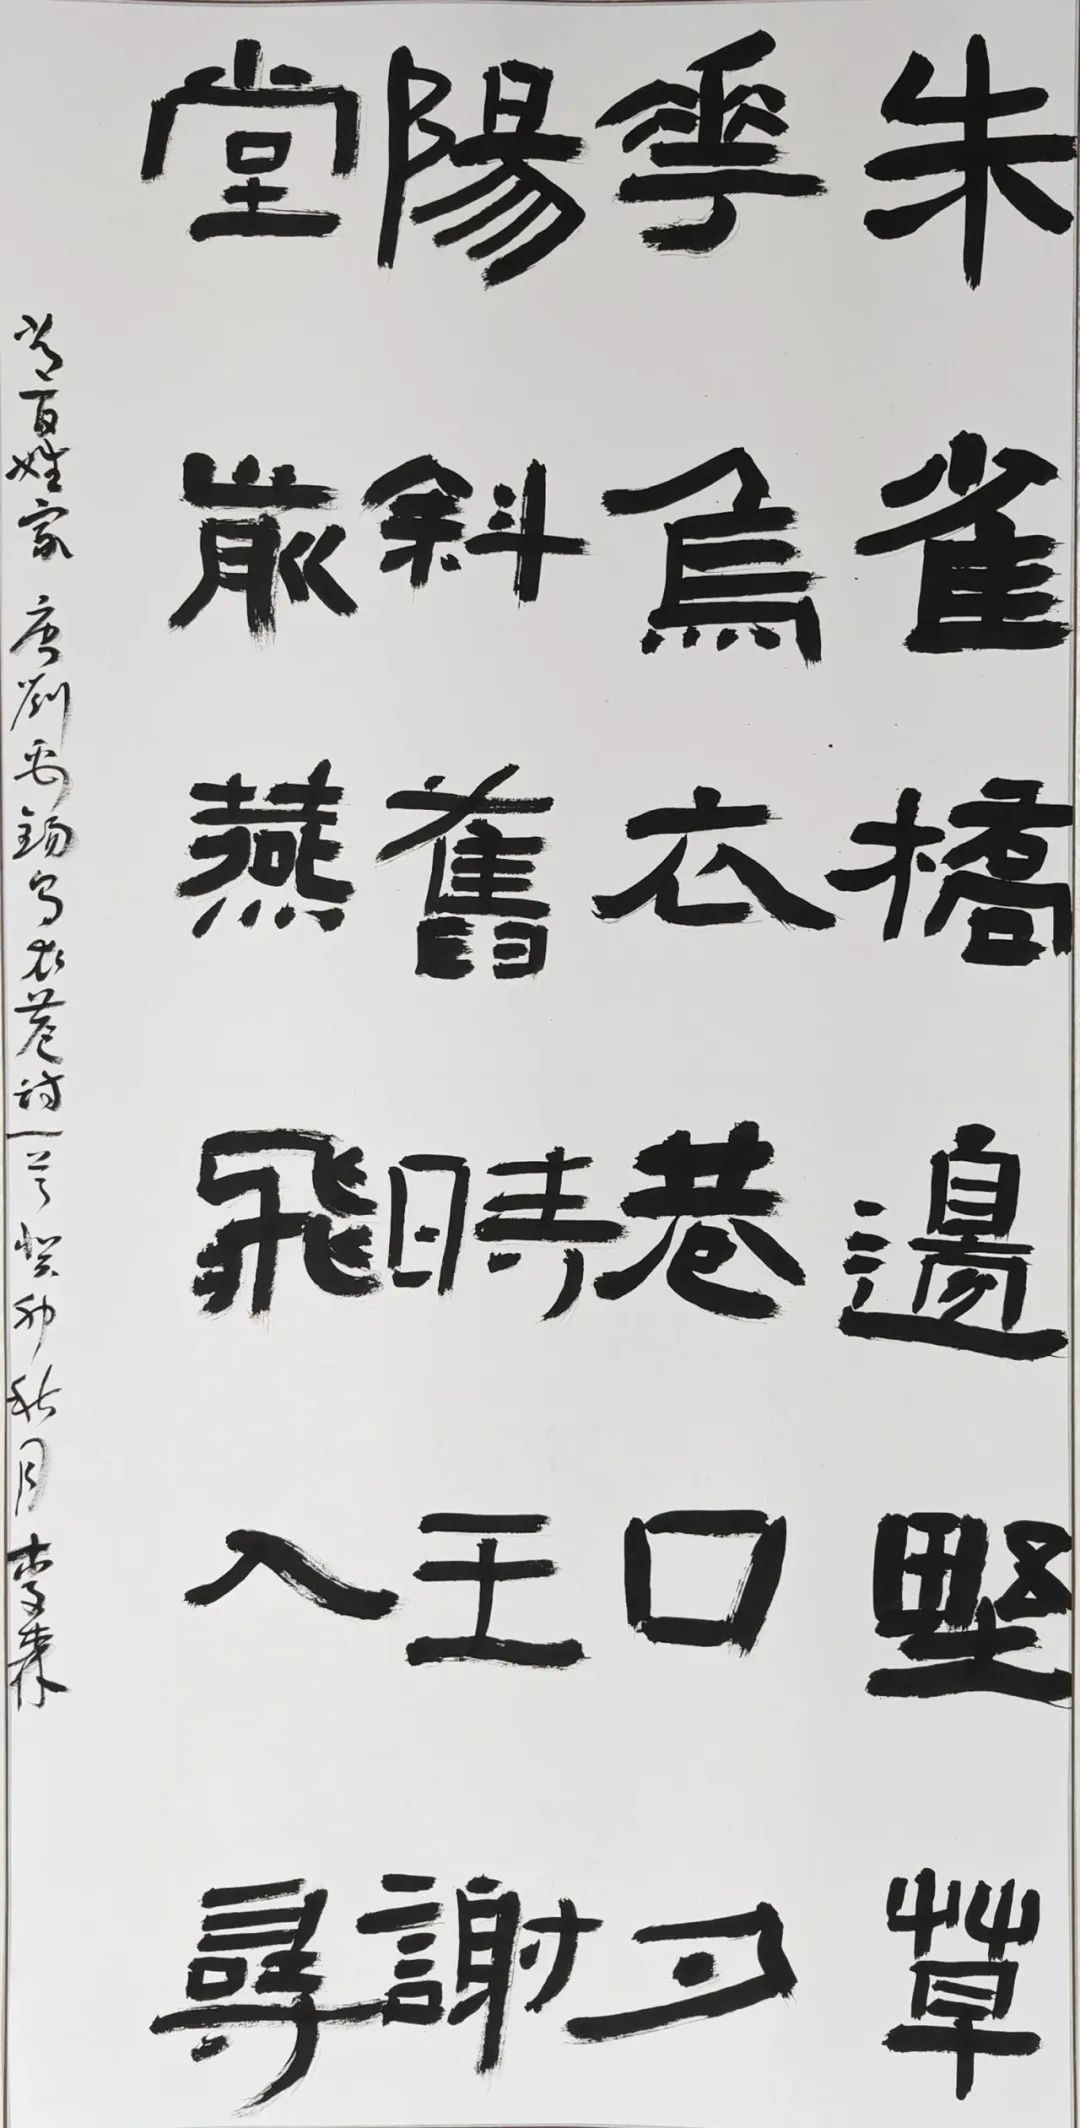 朱雀橋邊野草
花烏衣巷口夕
陽斜舊時王謝
堂前燕飛入尋
常百姓家 唐劉禹錫烏衣巷詩一首 癸卯秋月 李